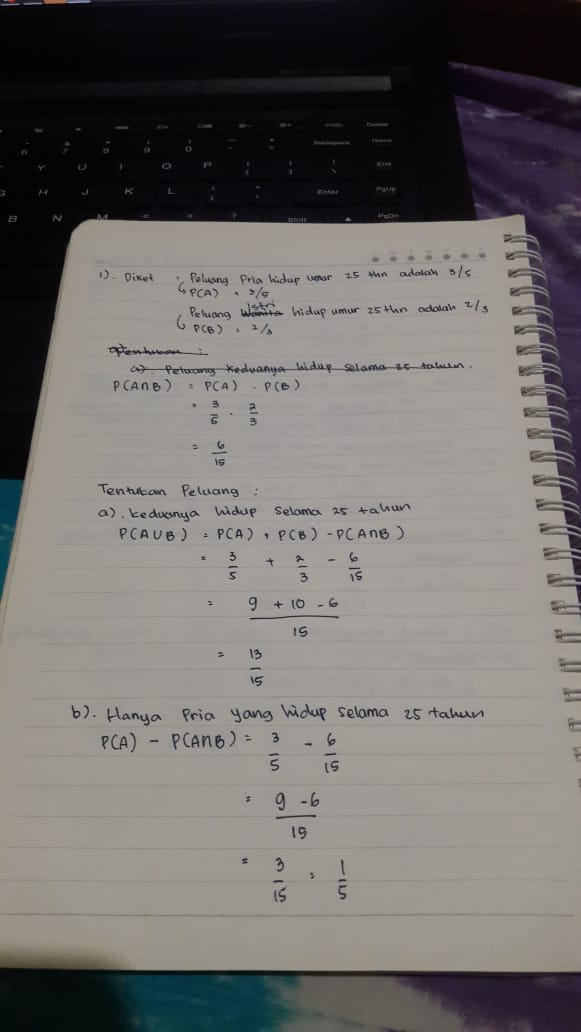 Delete
6 7 8 9 0 Backspace Home
Y U I O P End
G H J K L Enter PgUp
B N M < > ? Shift PgDn
1). Diket : Peluang Pria hidup umur 25 thn adalah 3/5
P(A) = 3/5
Istri
Peluang Wanita hidup umur 25 thn adalah 2/3
P(B) = 2/3
Tentukan :
a). Peluang Keduanya hidup selama 25 tahun.
P(A∩B) = P(A) . P(B)
= 3/5 . 2/3
= 6/15
Tentukan Peluang :
a). Keduanya hidup selama 25 tahun
P(A∪B) = P(A) + P(B) - P(A∩B)
= 3/5 + 2/3 - 6/15
= 9 + 10 - 6
15
= 13/15
b). Hanya Pria yang hidup selama 25 tahun
P(A) - P(A∩B) = 3/5 - 6/15
= 9 - 6
15
= 3/15 = 1/5